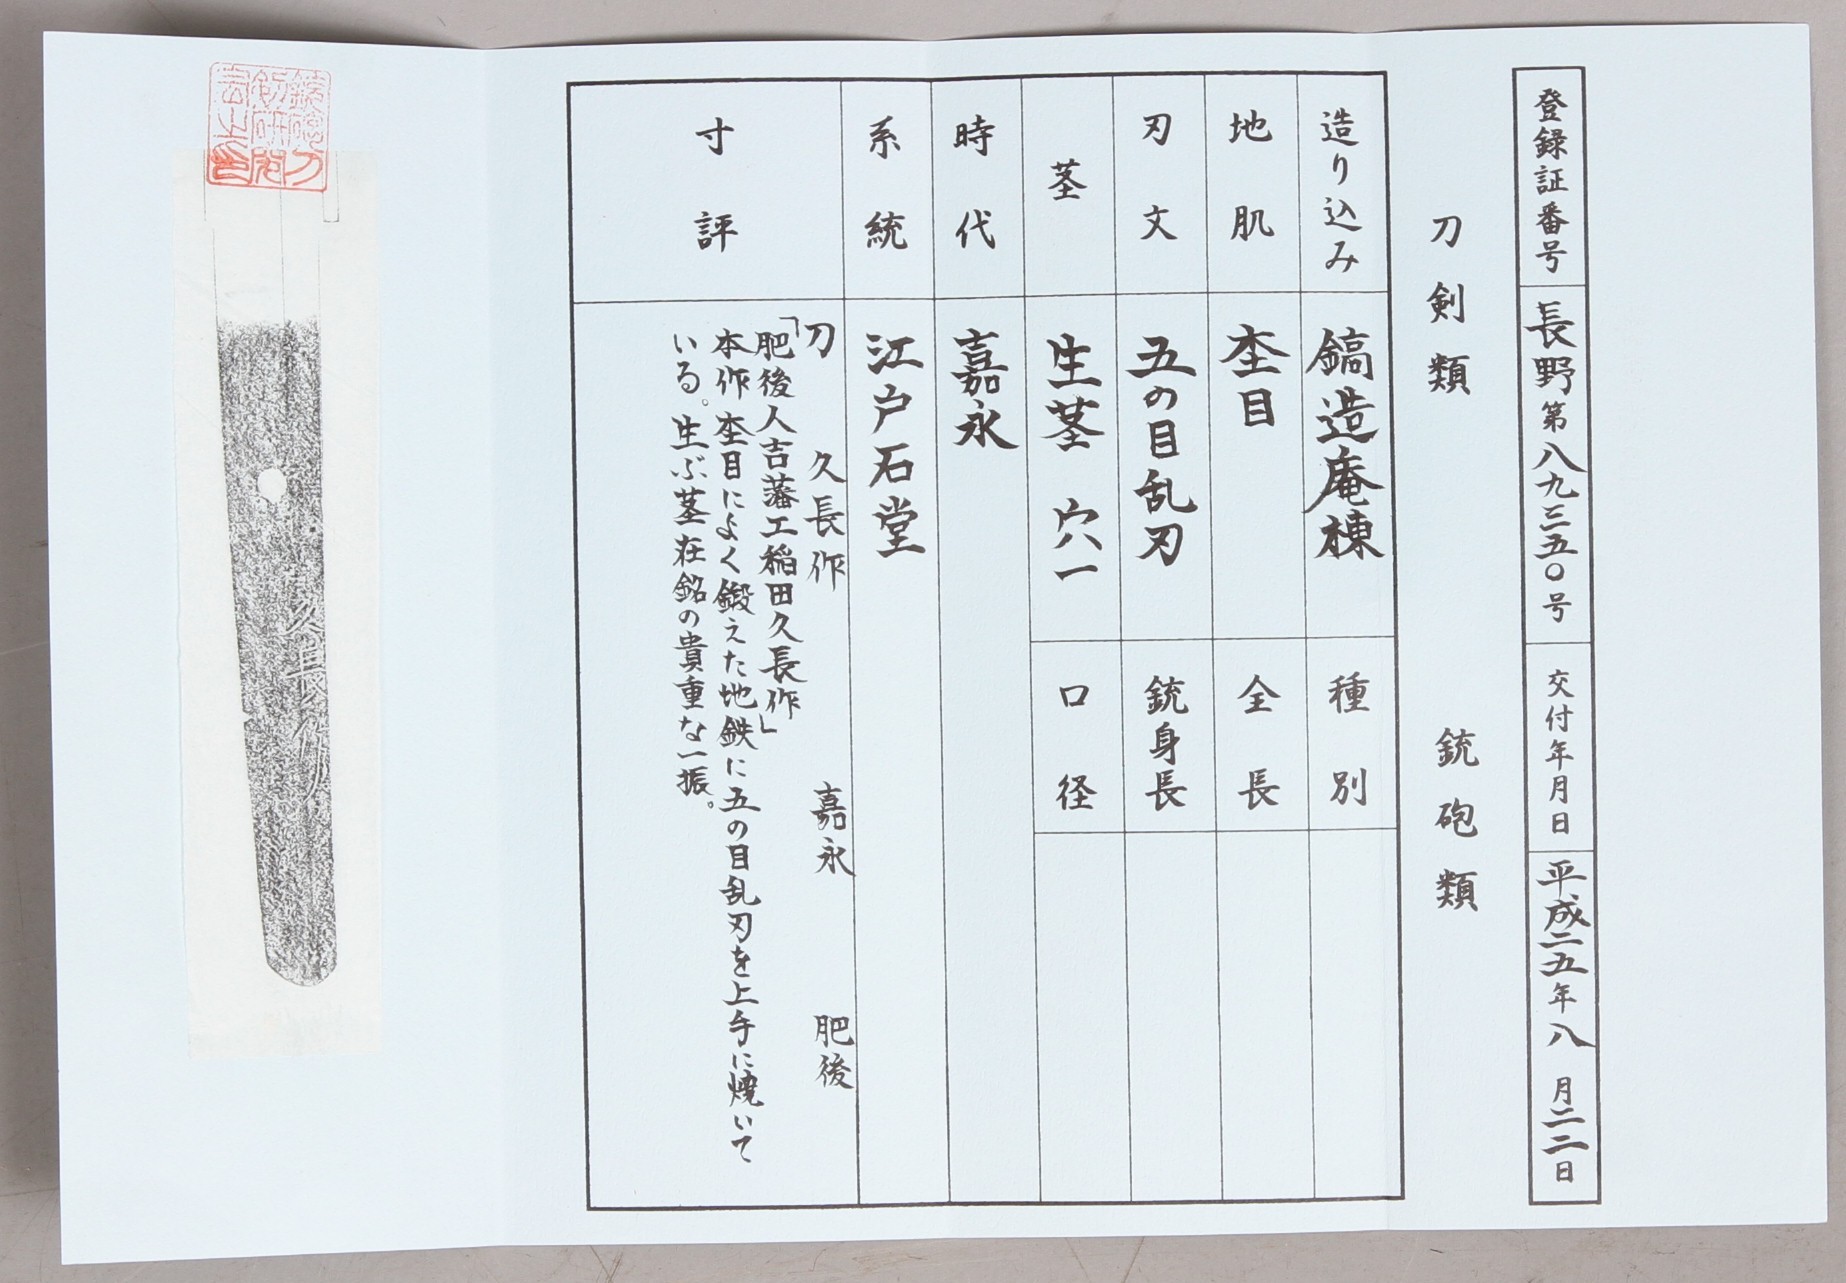 登録証番号 長野第八九三五〇号 交付年月日 平成二五年八月二二日
刀剣類 銃砲類
造り込み 鎬造庵棟 種別
地肌 杢目 全長
刃文 五の目乱刃 銃身長
茎 生茎 穴一 口径
時代 嘉永
系統 江戸石堂
寸評
刀 久長作 嘉永 肥後
「肥後人吉藩工稲田久長作」
本作杢目によく鍛えた地鉄に五の目乱刃を上手に焼いて
いる。生ぶ茎在銘の貴重な一振。
久長作